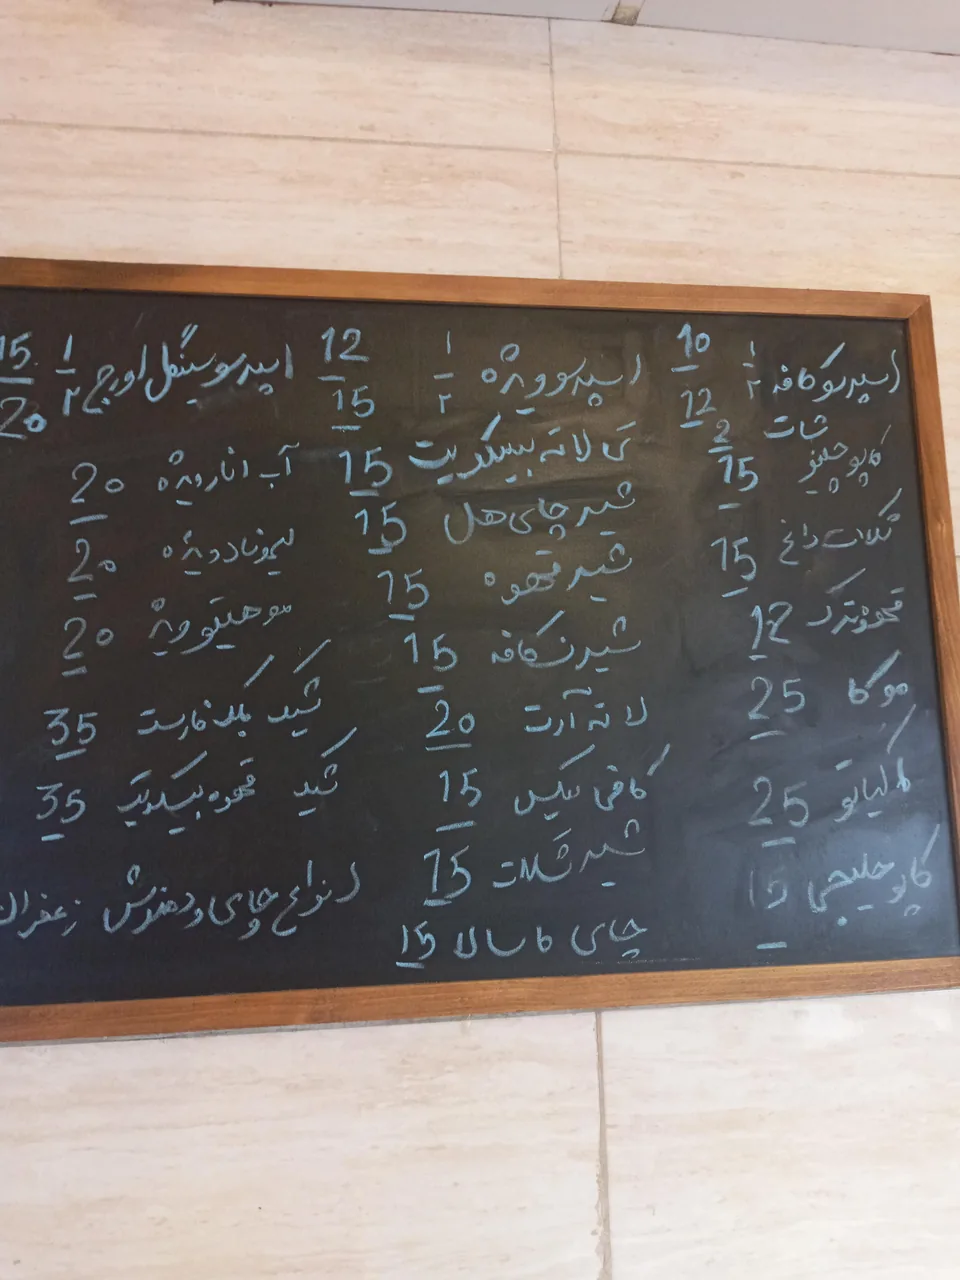 اسپرسو کافه ۱ 10
۲ 12
شات 2
کاپوچینو 15
شکلات داغ 15
قهوه ترک 12
موکا 25
ماکیاتو 25
کاپوچلیچی 15
اسپرسو ویژه ۱ 12
۲ 15
تی لاته بیسکویت 15
شیر چای هل 15
شیر قهوه 15
شیر نسکافه 15
لاته آرت 20
کافی میکس 15
شیر شکلات 15
چای ماسالا 15
اسپرسو سینگل اورجن ۱ 15
۲ 20
آب انار ویژه 20
لیموناد ویژه 20
موهیتو ویژه 20
شیک بلک فارست 35
شیک قهوه بیسکویت 35
انواع چای و دمنوش زعفران